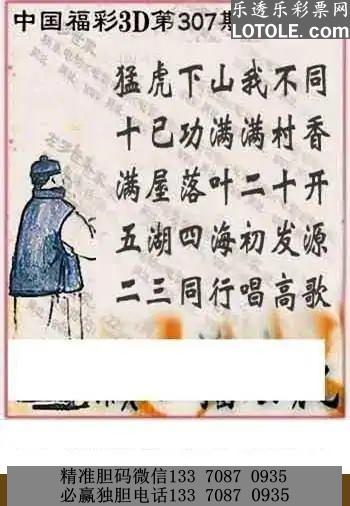 乐透乐彩票网
中国福彩3D第307期
LOTOLE.COM
猛虎下山我不同
十已功满满村香
满屋落叶二十开
五湖四海初发源
二三同行唱高歌
精准胆码微信133 7087 0935
必赢独胆电话133 7087 0935